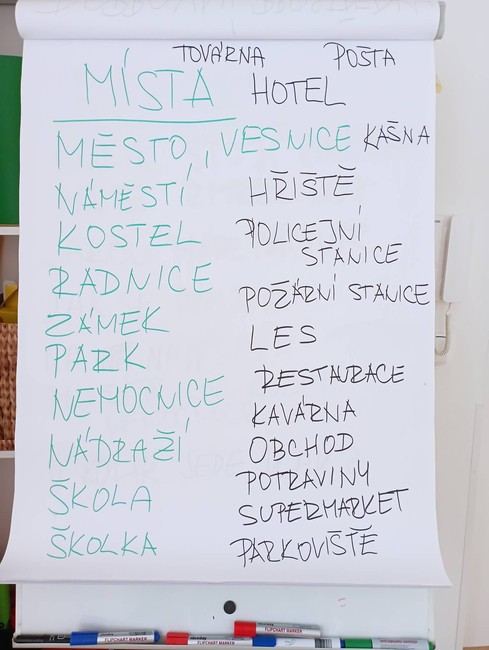 TOVÁRNA POŠTA
MÍSTA HOTEL
MĚSTO, VESNICE KAŠNA
NÁMĚSTÍ
KOSTEL
RADNICE
ZÁMEK
PARK
NEMOCNICE
NÁDRAŽÍ
ŠKOLA
ŠKOLKA
HŘIŠTĚ
POLICEJNÍ
STANICE
POŽÁRNÍ STANICE
LES
RESTAURACE
KAVÁRNA
OBCHOD
POTRAVINY
SUPERMARKET
PARKOVIŠTĚ
FLIPCHART MARKER
FLIPCHART MARKER
FLIPCHART MARKER